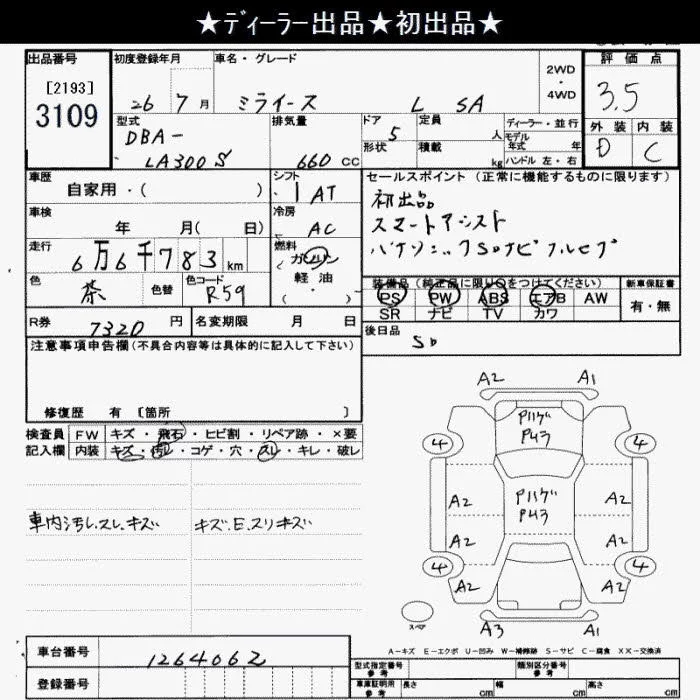 ★ディーラー出品★初出品★
出品番号
[2193]
3109
初度登録年月
26 7月
車名・グレード
ミライース L SA
2WD
・
4WD
評価点
3.5
外装 内装
D C
型式
DBA-
LA300S
排気量
660 CC
ドア 5
形状
定員 人
積載 kg
ディーラー・並行
モデル
年式 年
ハンドル 左・右
車歴
自家用・( )
シフト
1AT
車検
年 月( 日)
冷房
AC
走行
6万6千783km
燃料
(ガソリン
軽・油
・ )
色
茶
色替
色コード
R59
R券 7320 円
名変期限 月 日
セールスポイント (正常に機能するものに限ります)
初出品
スマートアシスト
パナソニックSDナビフルセグ
装備品(純正品に限り○をつけてください)
PS PW ABS エアB AW
SR ナビ TV カワ
新車保証書
有・無
後日品
注意事項申告欄(不具合内容等は具体的に記入して下さい)
修復歴 有 [箇所 ]
検査員
記入欄
FW キズ・飛石・ヒビ割・リペア跡・×要
内装 キズ・汚レ・コゲ・穴・スレ・キレ・破レ
車内汚レ.スレ.キズ
キズ.E.スリキズ
A2 A1
4 4
A2 A2
A2 A2
4 4
A2 A2
A3 A1
スペア
A-キズ E-エクボ U-凹み W-補修跡 S-サビ C-腐食 XX-交換済
車台番号
1264062
登録番号
型式指定番号
参考
類別区分番号
参考
車庫証明用
参考
長さ cm 幅 cm 高さ cm